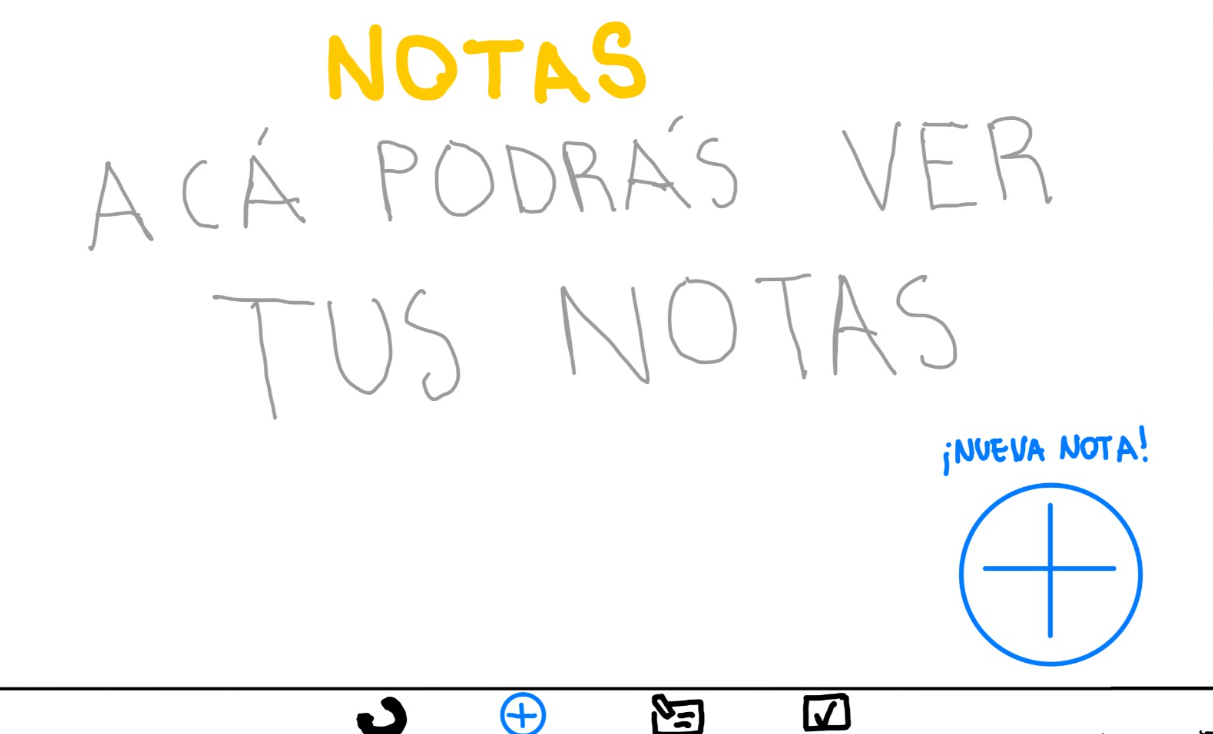 NOTAS
ACÁ PODRÁS VER
TUS NOTAS
¡NUEVA NOTA!